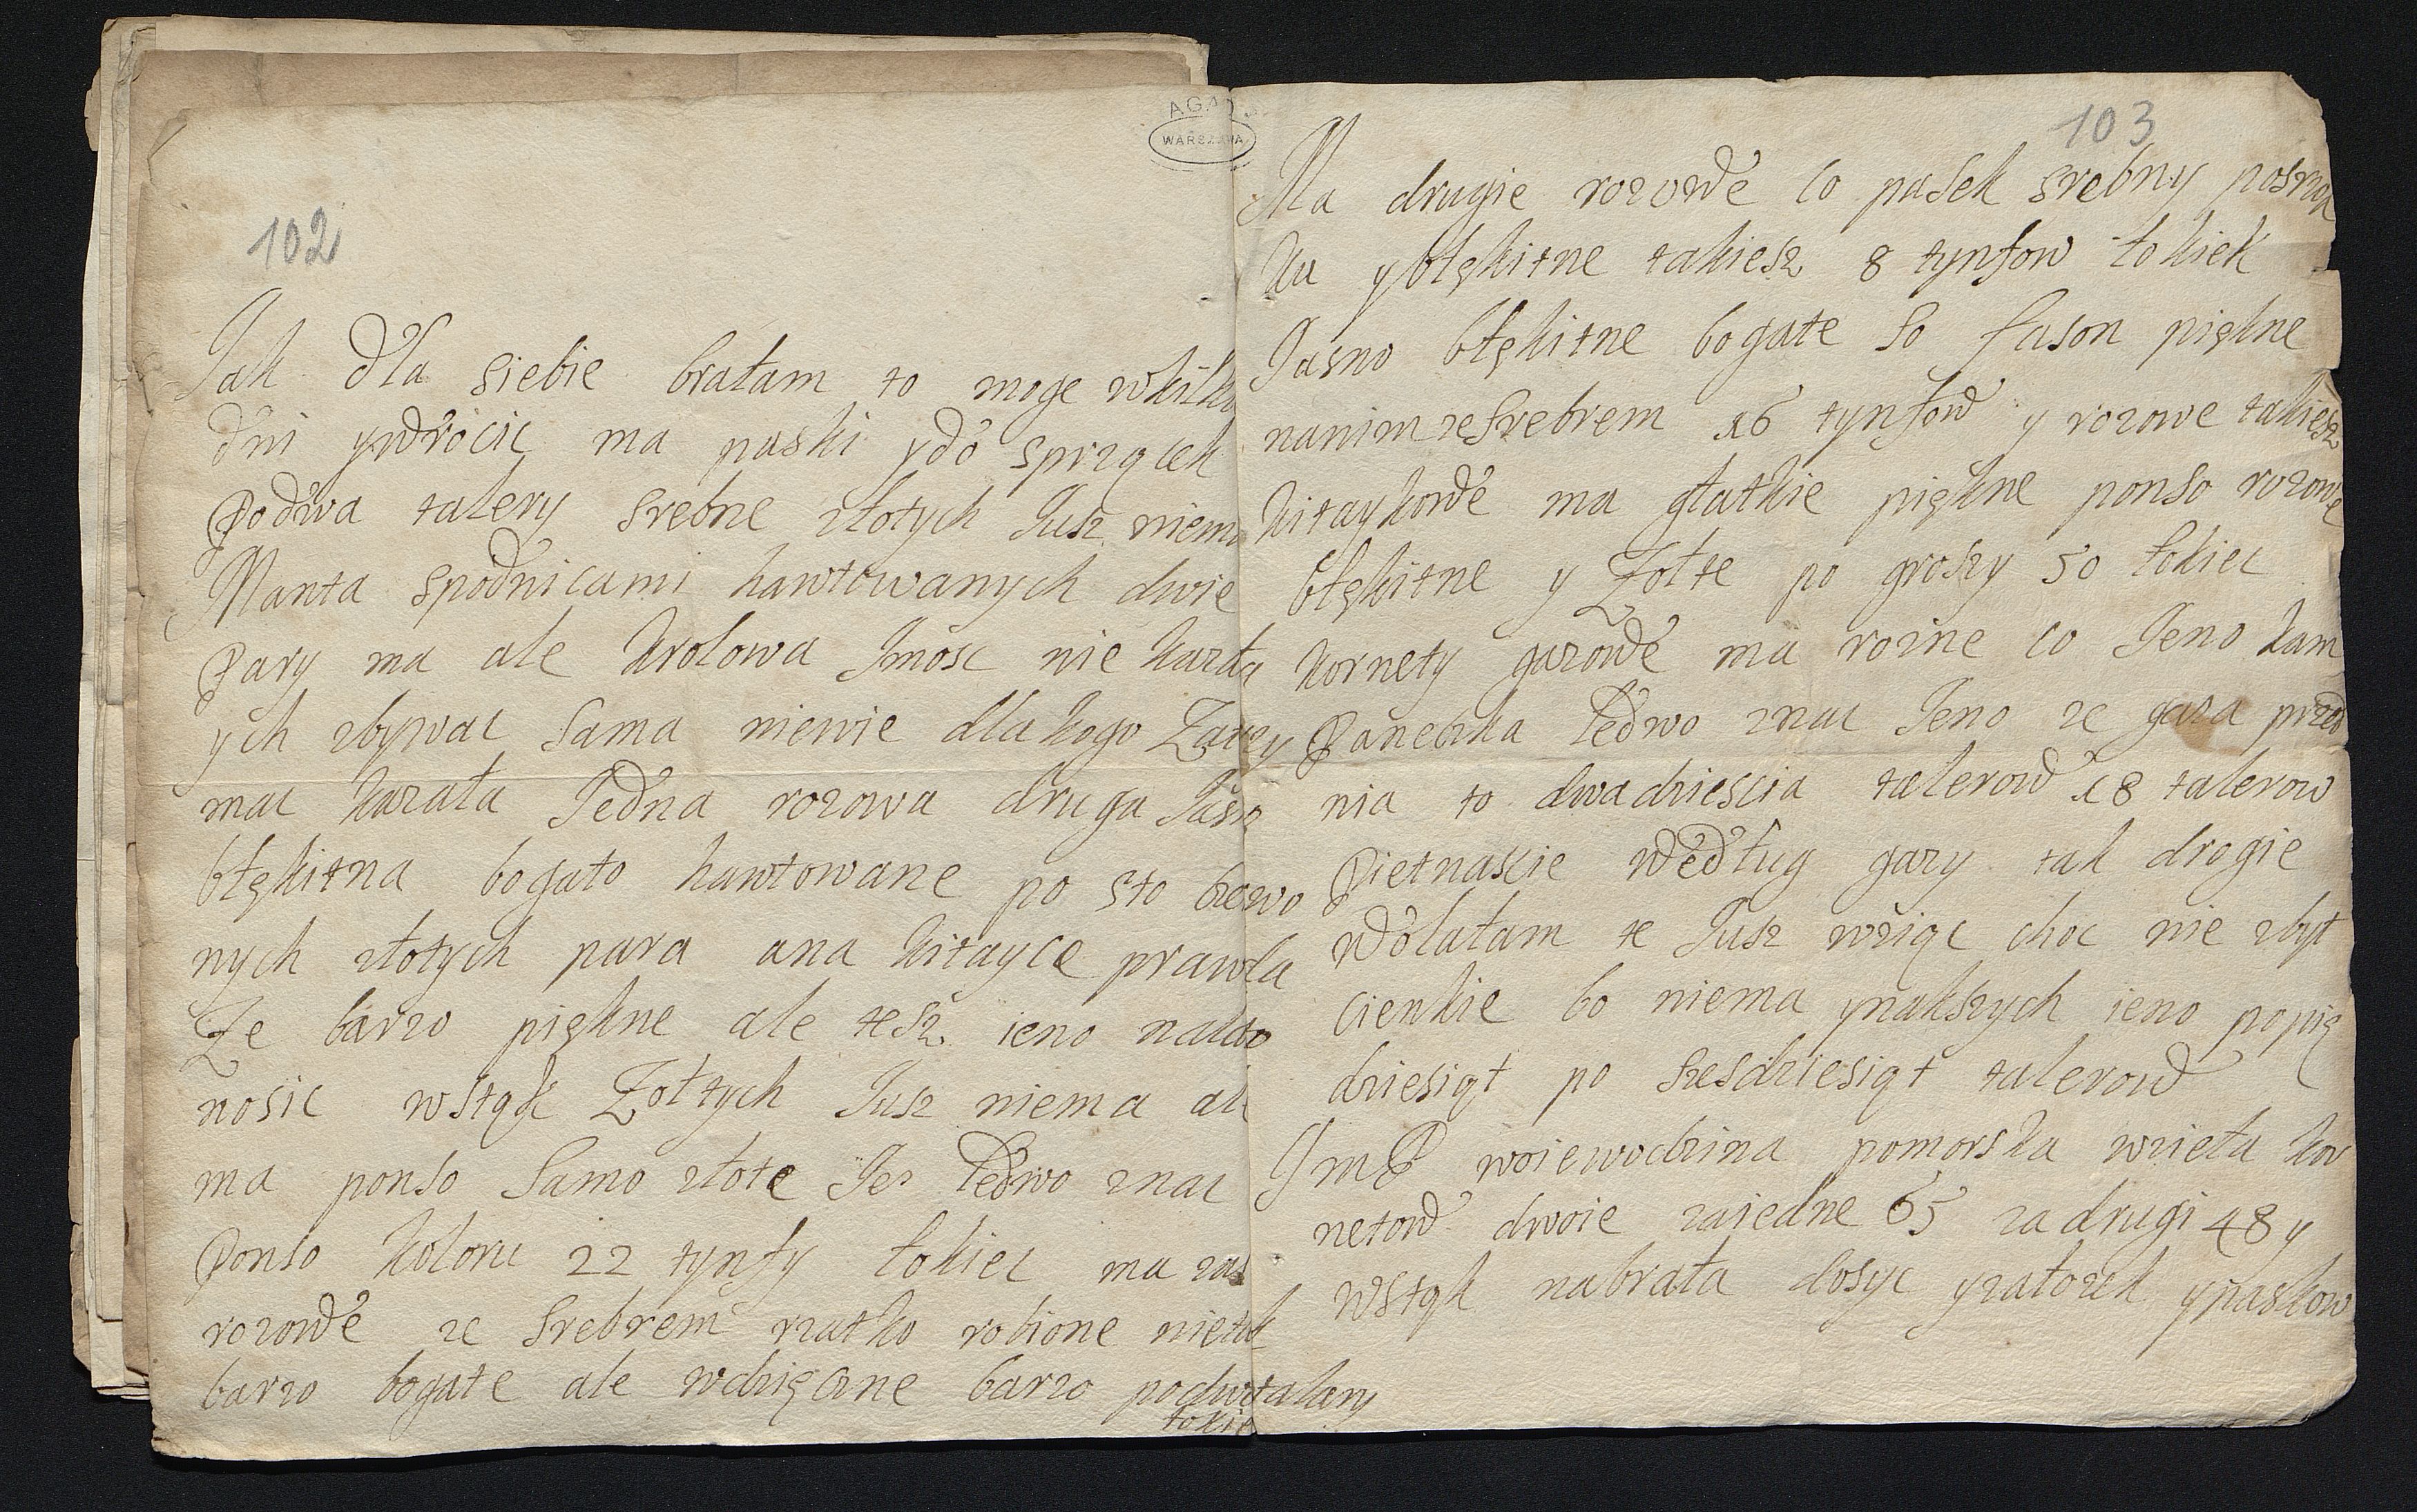 102
Jak dla siebie brałam to moge wkilku
dni ywrocic ma paski ydo sprzącek
Podwa talery srebne złotych Jusz niema
Manta spodnicami hawtowanych dwie
Pary ma ale krolowa Jmosc nie kazała
ych zbywac sama niewie dla kogo
mac kazała Jedna rozowa druga Jasno
błękitna bogato hawtowane po sto
nych złotych para ana kitayce prawda
Że barzo piękne ale tesz ieno nalato
nosic wstąk Zołtych Jusz niema ale
ma ponso samo złote Jes ledwo znac
Ponso koloru 22 tynfy łokiec ma zas
rozowe ze srebrem rzatko robione nietak
barzo bogate ale wdzięczne barzo podwatalary
łokiec
AGAD
WARSZAWA
103
Ma drugie rozowe co pasek srebny posrzod
ku ybłękitne takiesz 8 tynfow łokiek
Jasno błękitne bogate so fason piękne
nanim zesrebrem 16 tynfow y rozowe takiesz
kitaykowe ma głatkie piękne ponso rozowe
błękitne y Zołte po groszy 50 łokiec
kornety gazowe ma rozne co Jeno kam
Paneczka ledwo znac Jeno ze gaza przed
nia to dwadziescia talerow 18 talerow
Pietnascie według gazy tak drogie
Wolałam te Jusz wziąc choc nie zbyt
cienkie bo niema ynakszych ieno popię
dziesiąt po szesdziesiąt talerow
JmP woiewodzina pomorska wzieła kor
netow dwoie zaiedne 65 zadrugi 48 y
wstąk nabrała dosyc yzałozek ypaskow